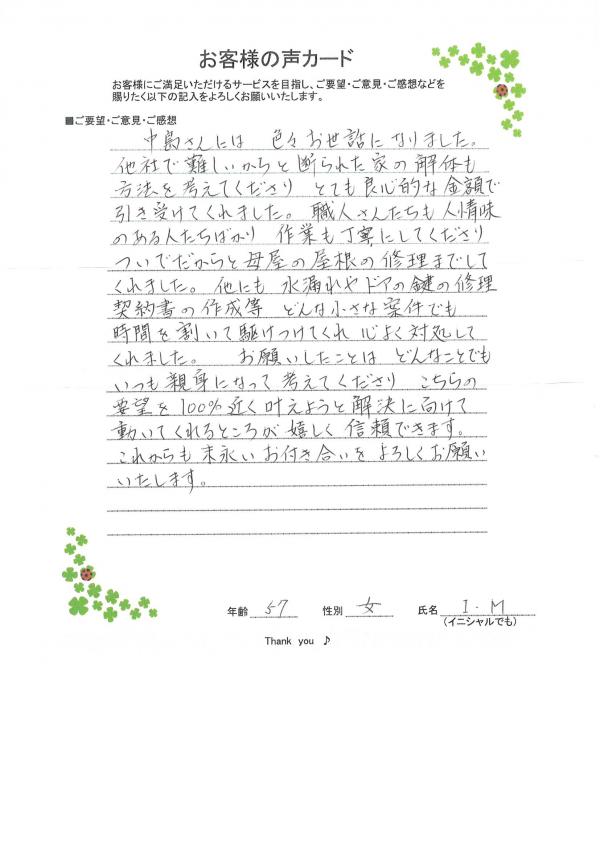 お客様の声カード
お客様にご満足いただけるサービスを目指し、ご要望・ご意見・ご感想などを
賜りたく以下の記入をよろしくお願いいたします。
■ご要望・ご意見・ご感想
中島さんには 色々お世話になりました。
他社で難しいからと断られた家の解体も
方法を考えてくださり とても良心的な金額で
引き受けてくれました。職人さんたちも人情味
のある人たちばかり 作業も丁寧にしてくださり
ついでだからと母屋の屋根の修理までして
くれました。他にも 水漏れやドアの鍵の修理
契約書の作成等 どんな小さな案件でも
時間を割いて駆けつけてくれ 心よく対処して
くれました。 お願いしたことは どんなことでも
いつも親身になって考えてくださり こちらの
要望を100%近く叶えようと解決に向けて
動いてくれるところが嬉しく信頼できます。
これからも末永いお付き合いをよろしくお願い
いたします。
年齢 57 性別 女 氏名 I.M
(イニシャルでも)
Thank you ♪